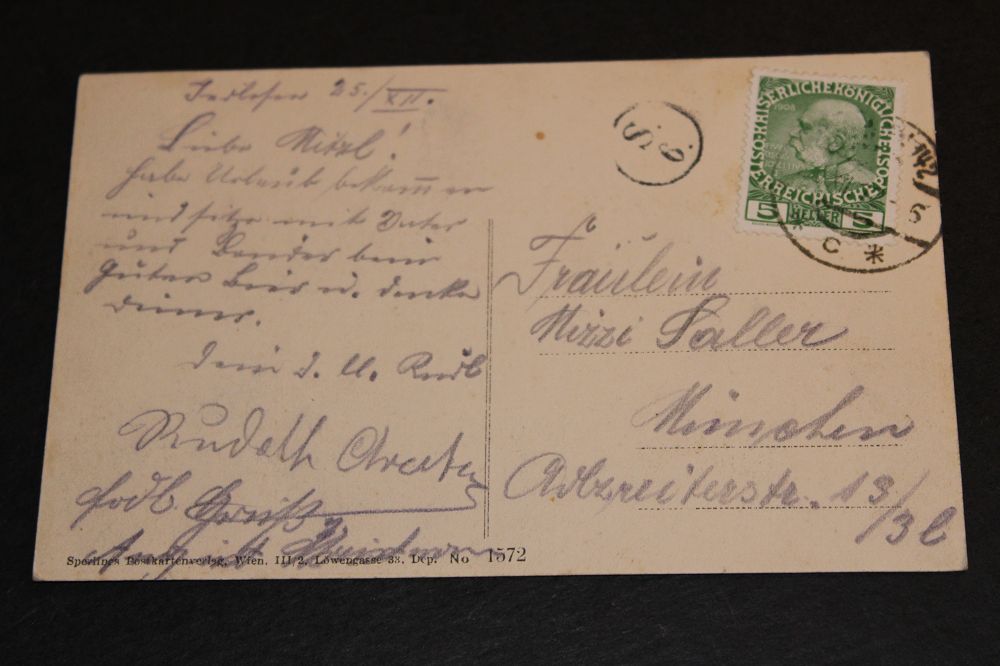 25./XII.
Liebe Mitzl!
habe Urlaub bekommen
und sitze mit Vater
und beim
guten Bier u. denke
deiner.
dein d. U. Rudl
Rudolf
Fräulein
Mizzi Saller
München
Adlzreiterstr. 13/
/3l
KAISERLICHE KÖNIGLICHE
ÖSTERREICHISCHE POST
1908
5 HELLER 5
* C *
Sperlings Postkartenverlag, Wien, III/2, Löwengasse 33, Dep. No 1572